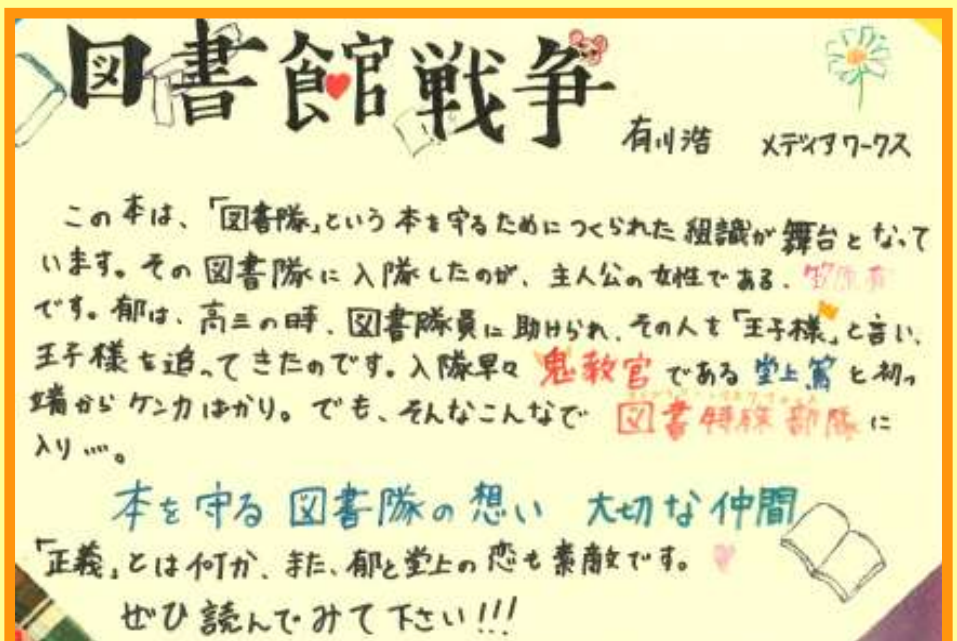 図書館戦争
有川浩 メディアワークス
この本は、「図書隊」という本を守るためにつくられた組識が舞台となって
います。その図書隊に入隊したのが、主人公の女性である、笠原郁
です。郁は、高三の時、図書隊員に助けられ、その人を「王子様」と言い、
王子様を追ってきたのです。入隊早々鬼教官である堂上篤と初っ
端からケンカばかり。でも、そんなこんなで図書特殊部隊に
入り…。
本を守る図書隊の想い 大切な仲間
「正義」とは何か、また、郁と堂上の恋も素敵です。
ぜひ読んでみて下さい!!!